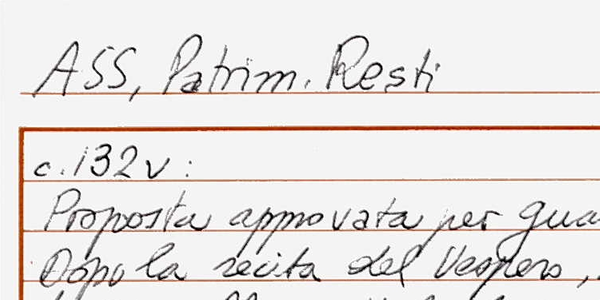 ASS, Patrim. Resti
c. 132v:
Proposta approvata per gua
Dopo la recita del Vespero,